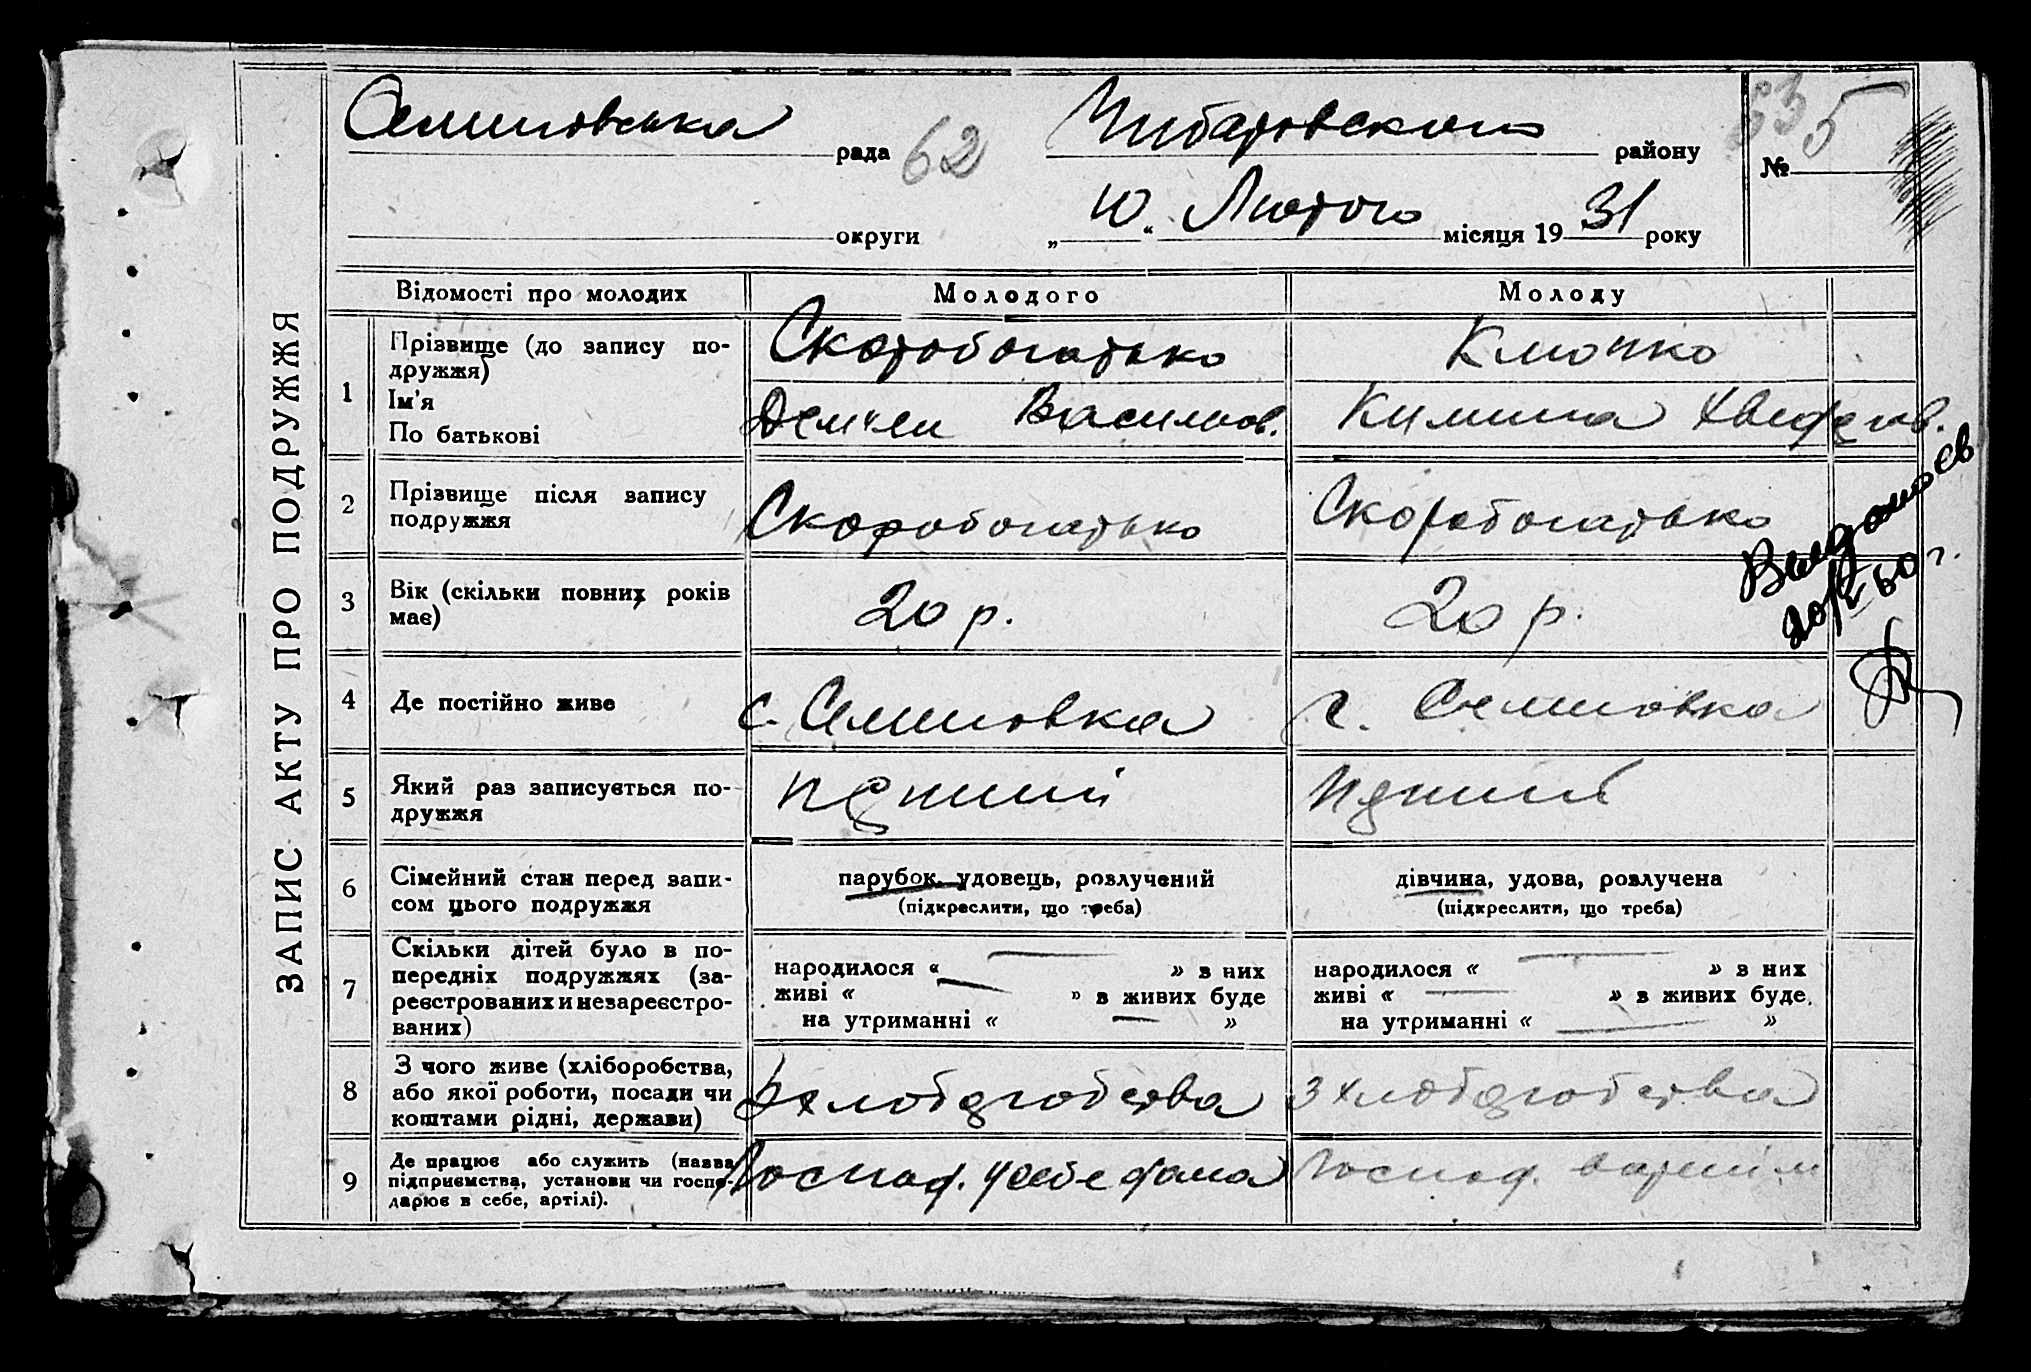 ЗАПИС АКТУ ПРО ПОДРУЖЖЯ
рада 62 району
№ 5
округи „10“ Лютого місяця 1931 року
Відомості про молодих Молодого Молоду
1 Прізвище (до запису по-
дружжя) Скоробогатько Клочко
Ім'я
По батькові Васильов.
2 Прізвище після запису
подружжя Скоробогатько Скоробогатько
3 Вік (скільки повних років
має) 20 р. 20 р.
4 Де постійно живе с. Семиновка с. Семиновка
5 Який раз записується по-
дружжя перший перший
6 Сімейний стан перед запи-
сом цього подружжя
парубок, удовець, розлучений
(підкреслити, що треба)
дівчина, удова, розлучена
(підкреслити, що треба)
7 Скільки дітей було в по-
передніх подружжях (за-
реєстрованих и незареєстро-
ваних)
народилося « — » з них
живі « — » з живих буде
на утриманні « — »
народилося « — » з них
живі « — » з живих буде
на утриманні « — »
8 З чого живе (хліборобства,
або якої роботи, посади чи
коштами рідні, держави)
З хлоборобства З хлоборобства
9 Де працює або служить (назва
підприємства, установи чи госпо-
дарює в себе, артілі).
Господ. у себе дома Господ.